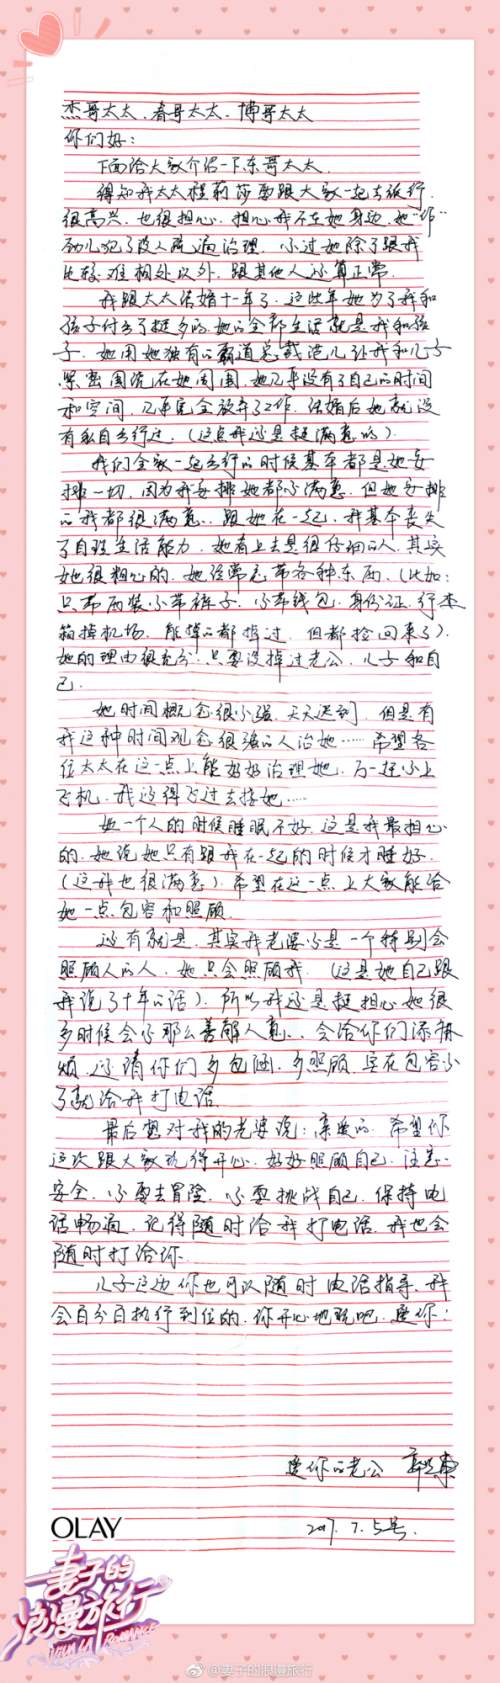 杰哥太太、春哥太太、博哥太太
你们好：
下面给大家介绍一下东哥太太。
得知我太太程莉莎要跟大家一起去旅行，
很高兴，也很担心。担心我不在她身边，她"作"
劲儿犯了没人能治理。不过她除了跟我
比较难相处以外，跟其他人还算正常。
我跟太太结婚十年了，这些年她为了我和
孩子付出了挺多的，她的全部生活就是我和孩
子。她用她独有的霸道总裁范儿让我和儿子
紧密围绕在她周围，她几乎没有了自己的时间
和空间，几乎完全放弃了工作，结婚后她就没
有私自出行过。（这点我还是挺满意的）。
我们全家一起出行的时候基本都是她安
排一切，因为我安排她都不满意，但她安排
的我都很满意。跟她在一起，我基本丧失
了自理生活能力。她看上去是很仔细的人，其实
她很粗心的，她经常忘带各种东西，（比如：
只带两装不带裤子，不带钱包，身份证，行李
箱掉机场，能掉的都掉过，但都捡回来了）。
她的理由很充分，只要没掉过老公、儿子和自
己。
她时间概念很不强，天天迟到，但是有
我这种时间观念很强的人治她……希望各
位太太在这一点上能好好治理她，万一赶不上
飞机，我还得飞过去接她……
她一个人的时候睡眠不好，这是我最担心
的，她说她只有跟我在一起的时候才睡好。
（这我也很满意）。希望在这一点上大家能给
她一点包容和照顾。
还有就是，其实我老婆不是一个特别会
照顾人的人，她只会照顾我，（这是她自己跟
我说了十年的话）。所以我还是挺担心她很
多时候会不那么善解人意，会给你们添麻
烦，还请你们多包涵，多照顾，实在包容不
了就给我打电话。
最后想对我的老婆说：亲爱的，希望你
这次跟大家玩得开心，好好照顾自己，注意
安全，不要去冒险，不要挑战自己，保持电
话畅通，记得随时给我打电话，我也会
随时打给你。
儿子这边你也可以随时电话指导，我
会百分百执行到位的，你开心地玩吧，爱你！
爱你的老公 郭晓东
2017.7.5号.
OLAY
妻子的
浪漫旅行
@妻子的浪漫旅行